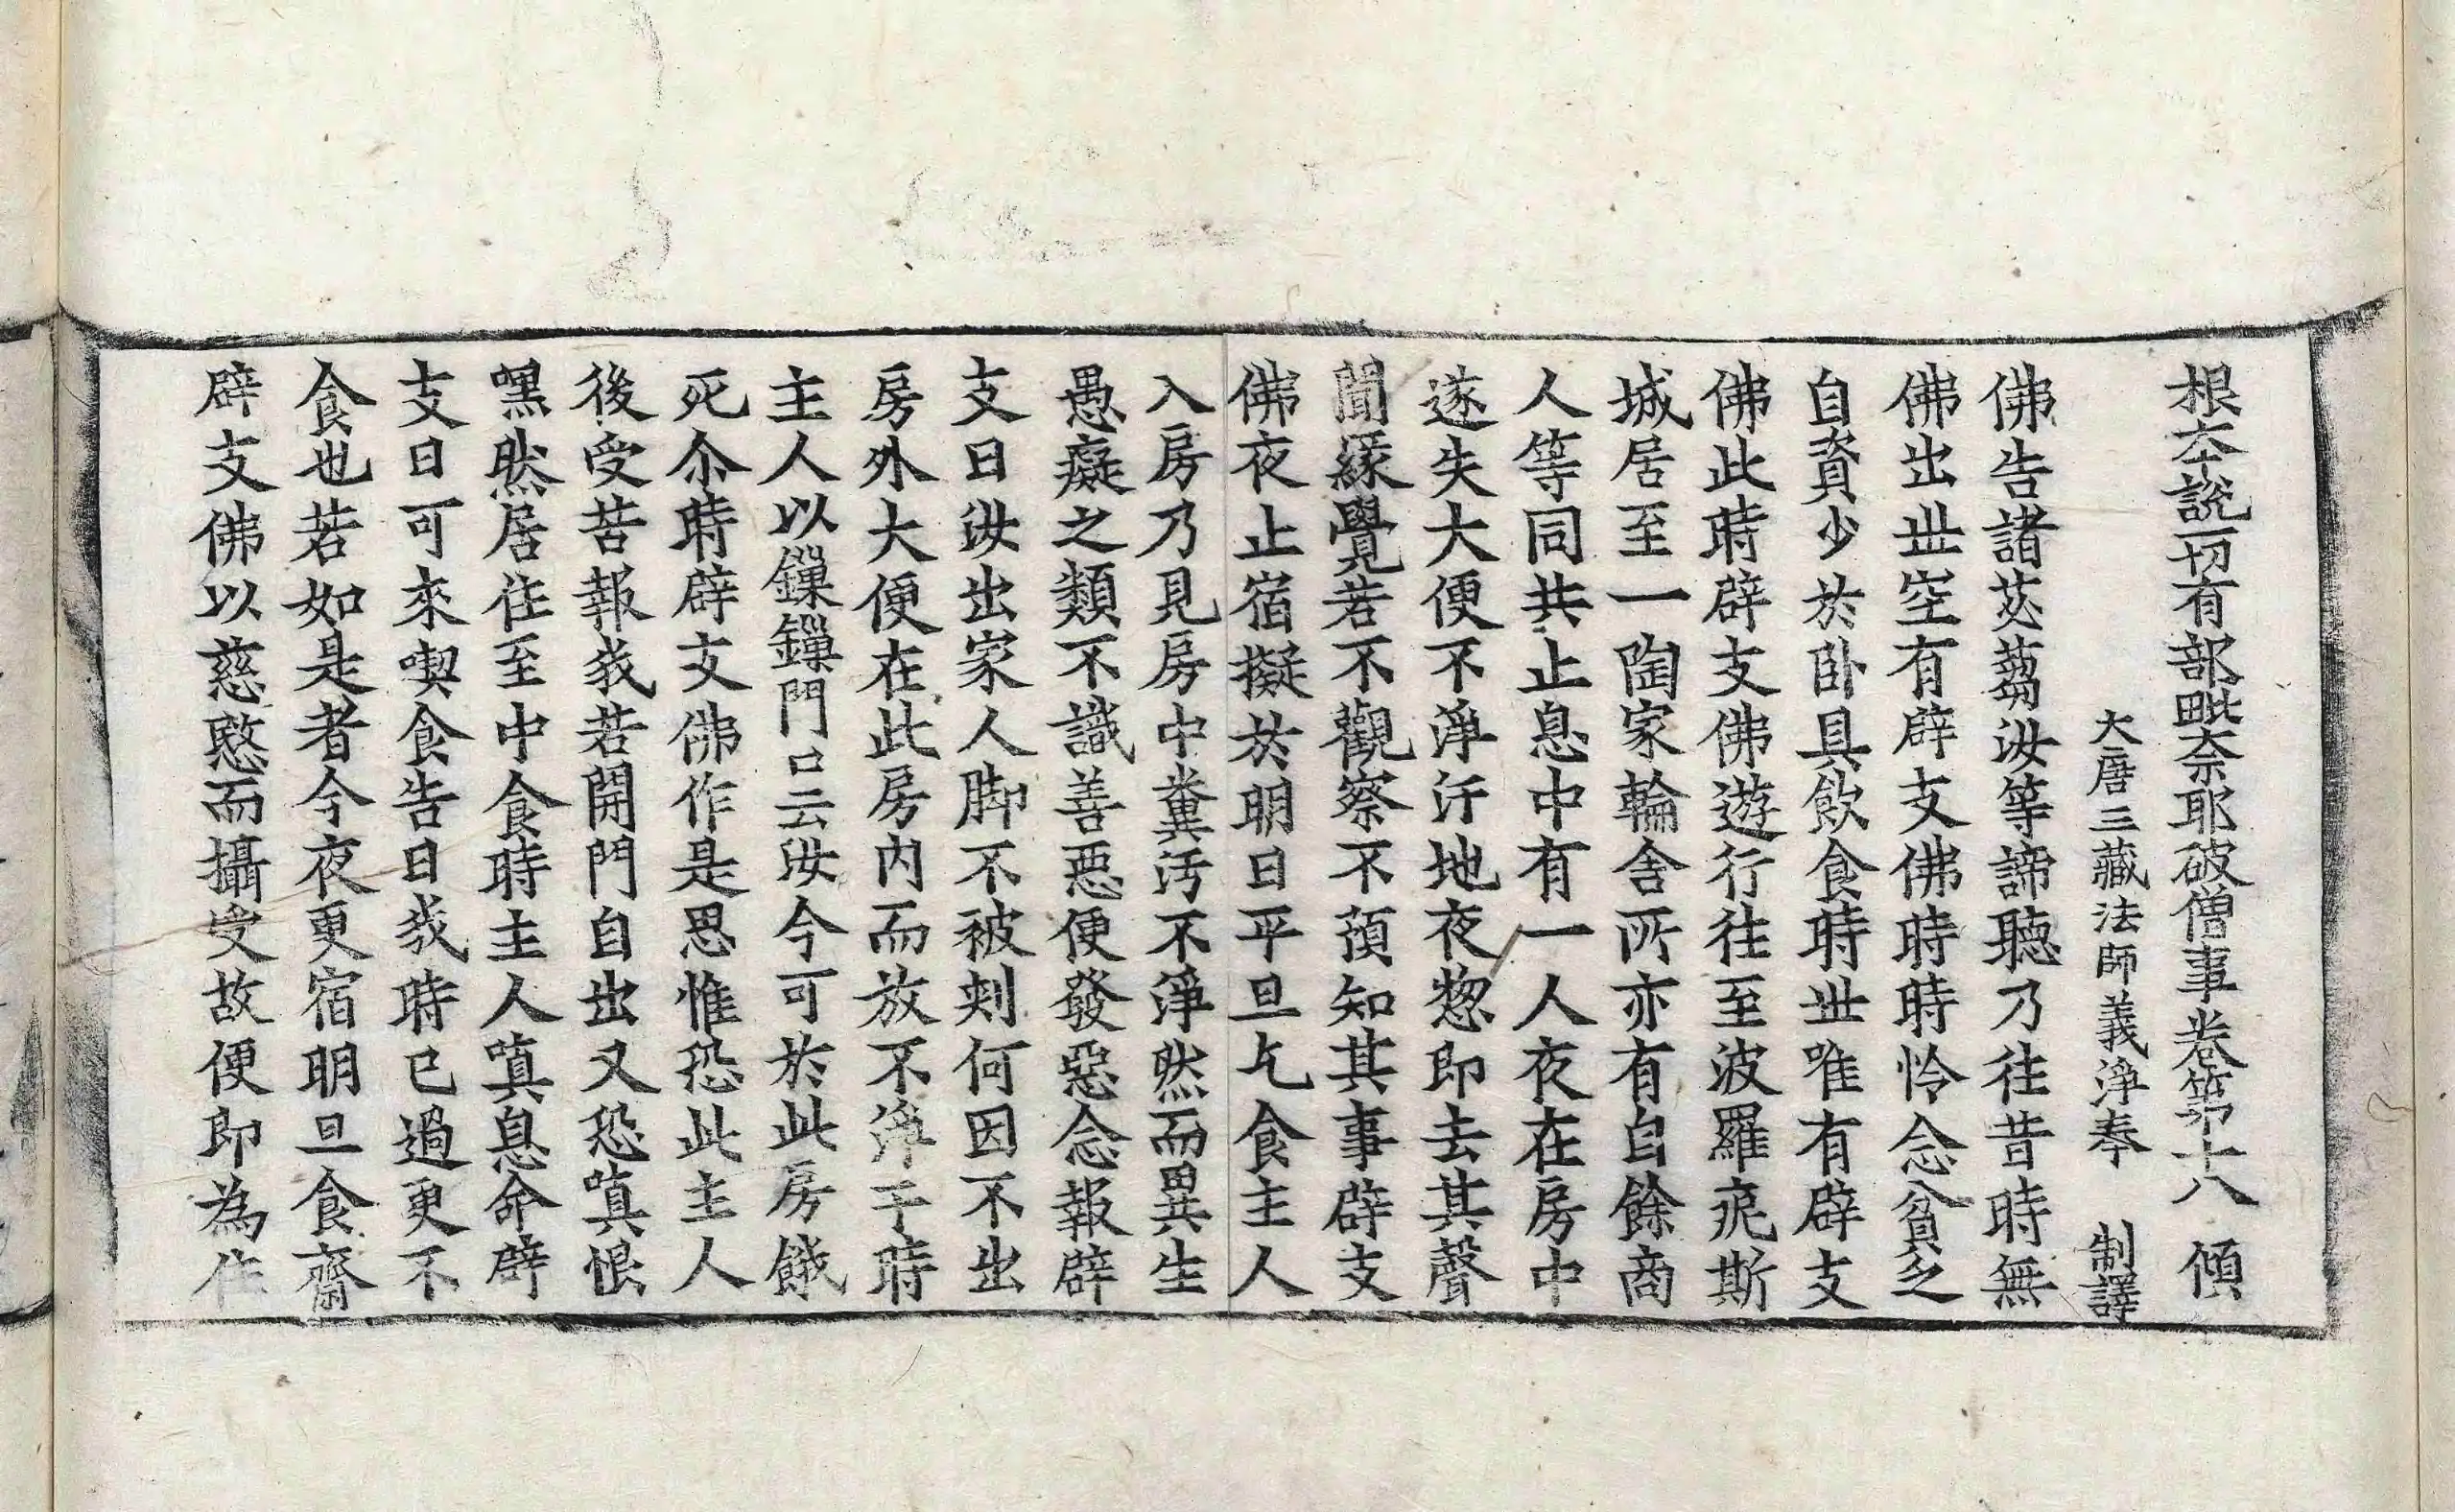 根夲說一切有部毗奈耶破僧事卷第十八 傾
大唐三藏法師義淨奉 制譯
佛告諸苾蒭汝等諦聽乃往昔時無
佛出世空有辟支佛時時怜念貧乏
自資少於卧具飲食時世唯有辟支
佛此時辟支佛遊行往至波羅痆斯
城居至一陶家輪舍所亦有自餘商
人等同共止息中有一人夜在房中
遂失大便不淨汙地夜惣即去其聲
聞緣覺若不觀察不預知其事辟支
佛夜止宿擬於明日平旦乞食主人
入房乃見房中糞汚不淨然而異生
愚癡之類不識善惡便發惡念報辟
支曰汝出家人脚不被刾何因不出
房外大便在此房内而放不淨于時
主人以鏁鏁門口云汝今可於此房餓
死尒時辟支佛作是思惟恐此主人
後受苦報我若開門自出又恐嗔恨
嘿然居住至中食時主人嗔息命辟
支曰可來喫食告曰我時已過更不
食也若如是者今夜更宿明旦食齋
辟支佛以慈愍而攝受故便即為住